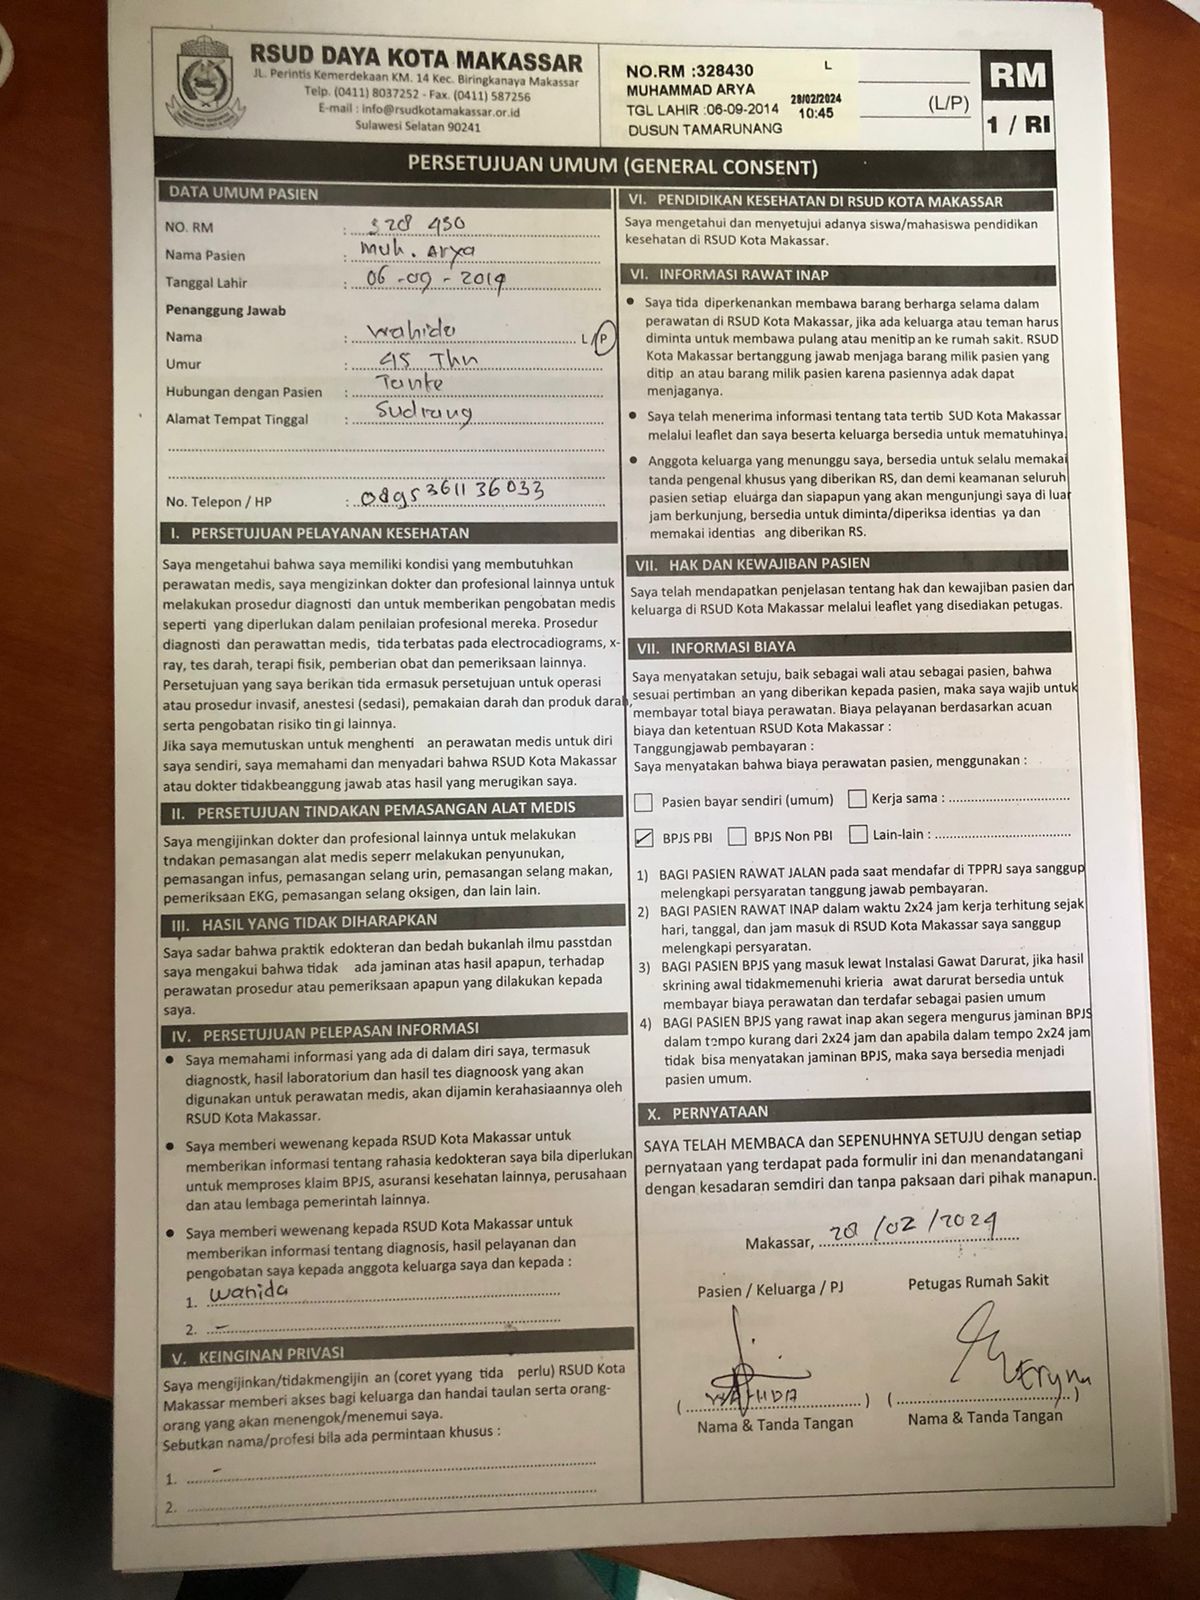 RSUD DAYA KOTA MAKASSAR
JL. Perintis Kemerdekaan KM. 14 Kec. Biringkanaya Makassar
Telp. (0411) 8037252 - Fax. (0411) 587256
E-mail : info@rsudkotamakassar.or.id
Sulawesi Selatan 90241
NO.RM :328430 L
MUHAMMAD ARYA
TGL LAHIR :06-09-2014
DUSUN TAMARUNANG
28/02/2024
10:45
(L/P)
RM
1 / RI
PERSETUJUAN UMUM (GENERAL CONSENT)
DATA UMUM PASIEN
NO. RM : 328 430
Nama Pasien : Muh. Arya
Tanggal Lahir : 06-09-2014
Penanggung Jawab
Nama : Wahida L/P
Umur : 45 Thn
Hubungan dengan Pasien : Tante
Alamat Tempat Tinggal : Sudiang
No. Telepon / HP :
I. PERSETUJUAN PELAYANAN KESEHATAN
Saya mengetahui bahwa saya memiliki kondisi yang membutuhkan
perawatan medis, saya mengizinkan dokter dan profesional lainnya untuk
melakukan prosedur diagnosti dan untuk memberikan pengobatan medis
seperti yang diperlukan dalam penilaian profesional mereka. Prosedur
diagnosti dan perawattan medis, tida terbatas pada electrocadiograms, x-
ray, tes darah, terapi fisik, pemberian obat dan pemeriksaan lainnya.
Persetujuan yang saya berikan tida ermasuk persetujuan untuk operasi
atau prosedur invasif, anestesi (sedasi), pemakaian darah dan produk darah,
serta pengobatan risiko tin gi lainnya.
Jika saya memutuskan untuk menghenti an perawatan medis untuk diri
saya sendiri, saya memahami dan menyadari bahwa RSUD Kota Makassar
atau dokter tidakbeanggung jawab atas hasil yang merugikan saya.
II. PERSETUJUAN TINDAKAN PEMASANGAN ALAT MEDIS
Saya mengijinkan dokter dan profesional lainnya untuk melakukan
tndakan pemasangan alat medis seperr melakukan penyunukan,
pemasangan infus, pemasangan selang urin, pemasangan selang makan,
pemeriksaan EKG, pemasangan selang oksigen, dan lain lain.
III. HASIL YANG TIDAK DIHARAPKAN
Saya sadar bahwa praktik edokteran dan bedah bukanlah ilmu passtdan
saya mengakui bahwa tidak ada jaminan atas hasil apapun, terhadap
perawatan prosedur atau pemeriksaan apapun yang dilakukan kepada
saya.
IV. PERSETUJUAN PELEPASAN INFORMASI
• Saya memahami informasi yang ada di dalam diri saya, termasuk
diagnostk, hasil laboratorium dan hasil tes diagnoosk yang akan
digunakan untuk perawatan medis, akan dijamin kerahasiaannya oleh
RSUD Kota Makassar.
• Saya memberi wewenang kepada RSUD Kota Makassar untuk
memberikan informasi tentang rahasia kedokteran saya bila diperlukan
untuk memproses klaim BPJS, asuransi kesehatan lainnya, perusahaan
dan atau lembaga pemerintah lainnya.
• Saya memberi wewenang kepada RSUD Kota Makassar untuk
memberikan informasi tentang diagnosis, hasil pelayanan dan
pengobatan saya kepada anggota keluarga saya dan kepada :
1. Wahida
2. -
V. KEINGINAN PRIVASI
Saya mengijinkan/tidakmengijin an (coret yyang tida perlu) RSUD Kota
Makassar memberi akses bagi keluarga dan handai taulan serta orang-
orang yang akan menengok/menemui saya.
Sebutkan nama/profesi bila ada permintaan khusus :
1. -
2.
VI. PENDIDIKAN KESEHATAN DI RSUD KOTA MAKASSAR
Saya mengetahui dan menyetujui adanya siswa/mahasiswa pendidikan
kesehatan di RSUD Kota Makassar.
VI. INFORMASI RAWAT INAP
• Saya tida diperkenankan membawa barang berharga selama dalam
perawatan di RSUD Kota Makassar, jika ada keluarga atau teman harus
diminta untuk membawa pulang atau menitip an ke rumah sakit. RSUD
Kota Makassar bertanggung jawab menjaga barang milik pasien yang
ditip an atau barang milik pasien karena pasiennya adak dapat
menjaganya.
• Saya telah menerima informasi tentang tata tertib SUD Kota Makassar
melalui leaflet dan saya beserta keluarga bersedia untuk mematuhinya.
• Anggota keluarga yang menunggu saya, bersedia untuk selalu memakai
tanda pengenal khusus yang diberikan RS, dan demi keamanan seluruh
pasien setiap eluarga dan siapapun yang akan mengunjungi saya di luar
jam berkunjung, bersedia untuk diminta/diperiksa identias ya dan
memakai identias ang diberikan RS.
VII. HAK DAN KEWAJIBAN PASIEN
Saya telah mendapatkan penjelasan tentang hak dan kewajiban pasien dan
keluarga di RSUD Kota Makassar melalui leaflet yang disediakan petugas.
VII. INFORMASI BIAYA
Saya menyatakan setuju, baik sebagai wali atau sebagai pasien, bahwa
sesuai pertimban an yang diberikan kepada pasien, maka saya wajib untuk
membayar total biaya perawatan. Biaya pelayanan berdasarkan acuan
biaya dan ketentuan RSUD Kota Makassar :
Tanggungjawab pembayaran :
Saya menyatakan bahwa biaya perawatan pasien, menggunakan :
Pasien bayar sendiri (umum) Kerja sama :
✓ BPJS PBI BPJS Non PBI Lain-lain :
1) BAGI PASIEN RAWAT JALAN pada saat mendafar di TPPRJ saya sanggup
melengkapi persyaratan tanggung jawab pembayaran.
2) BAGI PASIEN RAWAT INAP dalam waktu 2x24 jam kerja terhitung sejak
hari, tanggal, dan jam masuk di RSUD Kota Makassar saya sanggup
melengkapi persyaratan.
3) BAGI PASIEN BPJS yang masuk lewat Instalasi Gawat Darurat, jika hasil
skrining awal tidakmemenuhi krieria awat darurat bersedia untuk
membayar biaya perawatan dan terdafar sebagai pasien umum
4) BAGI PASIEN BPJS yang rawat inap akan segera mengurus jaminan BPJS
dalam tempo kurang dari 2x24 jam dan apabila dalam tempo 2x24 jam
tidak bisa menyatakan jaminan BPJS, maka saya bersedia menjadi
pasien umum.
X. PERNYATAAN
SAYA TELAH MEMBACA dan SEPENUHNYA SETUJU dengan setiap
pernyataan yang terdapat pada formulir ini dan menandatangani
dengan kesadaran semdiri dan tanpa paksaan dari pihak manapun.
Makassar, 28 /02 /2024
Pasien / Keluarga / PJ Petugas Rumah Sakit
(WAHIDA) ( )
Nama & Tanda Tangan Nama & Tanda Tangan